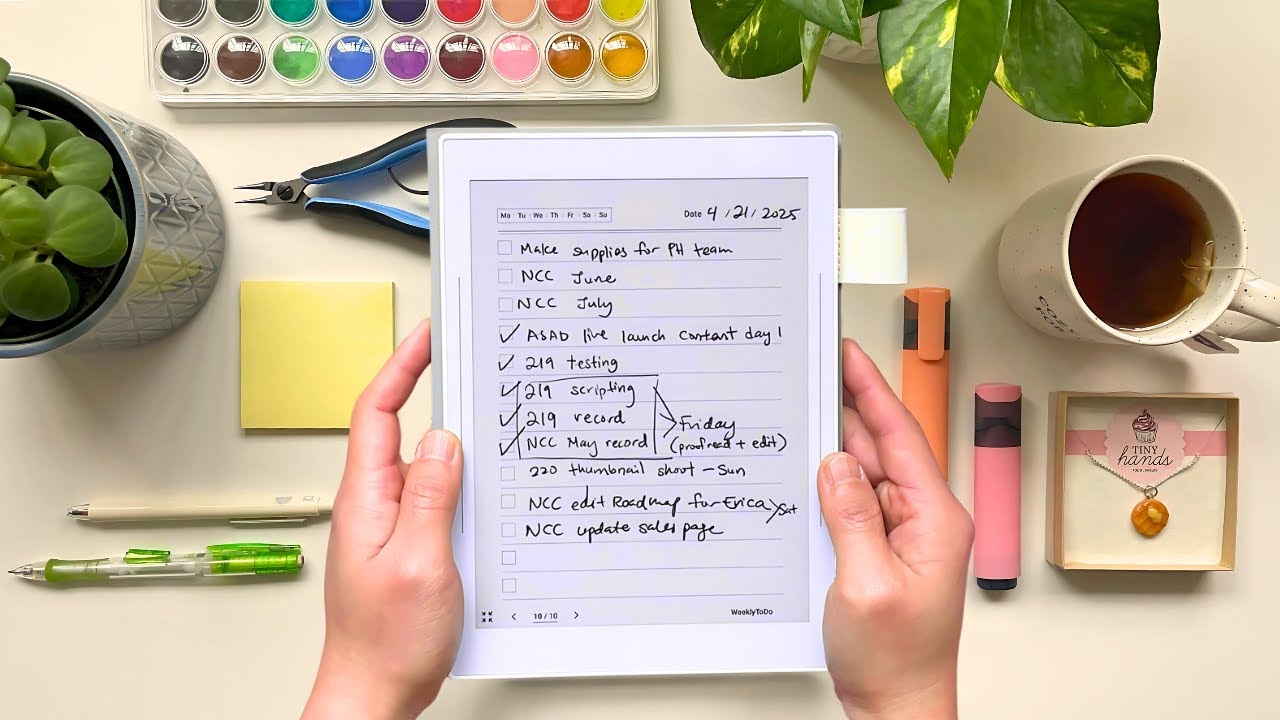 Mo Tu We Th Fr Sa Su
Date 4/21/2025
Make supplies for PH team
NCC June
NCC July
ASAD live launch content day!
219 testing
219 scripting
219 record
NCC May record
Friday
(proofread + edit)
220 thumbnail shoot - Sun
NCC edit Roadmap for Erica > Sat
NCC update sales page
< 10 / 10 >
WeeklyToDo
TINY
hands